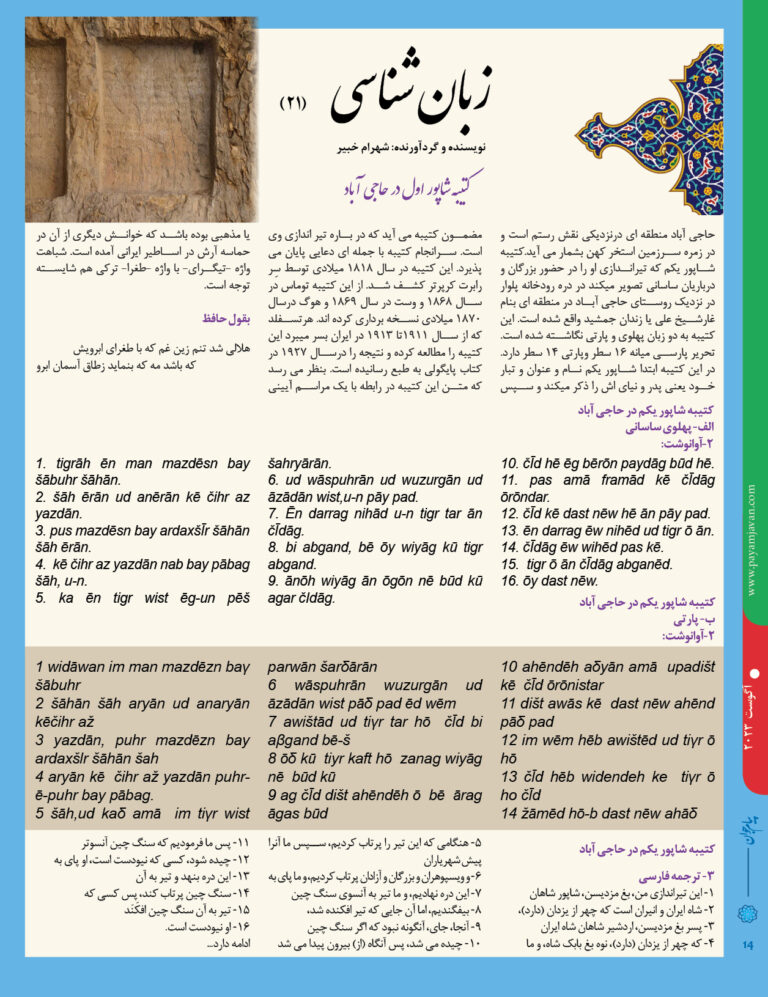 زبان شناسی (۲۱)
نویسنده و گردآورنده: شهرام خبیر
کتیبه شاپور اول در حاجی آباد
حاجی آباد منطقه ای درنزدیکی نقش رستم است و
در زمره سرزمین استخر کهن بشمار می آید.کتیبه
شاپور یکم که تیراندازی او را در حضور بزرگان و
درباریان ساسانی تصویر میکند در دره رودخانه پلوار
در نزدیک روستای حاجی آباد در منطقه ای بنام
غارشیخ علی یا زندان جمشید واقع شده است. این
کتیبه به دو زبان پهلوی و پارتی نگاشته شده است.
تحریر پارسی میانه ۱۶ سطر وپارتی ۱۴ سطر دارد.
در این کتیبه ابتدا شاپور یکم نام و عنوان و تبار
خود یعنی پدر و نیای اش را ذکر میکند و سپس
مضمون کتیبه می آید که در باره تیر اندازی وی
است. سرانجام کتیبه با جمله ای دعایی پایان می
پذیرد. این کتیبه در سال ۱۸۱۸ میلادی توسط سر
رابرت کرپرتر کشف شد. از این کتیبه توماس در
سال ۱۸۶۸ و وست در سال ۱۸۶۹ و هوگ درسال
۱۸۷۰ میلادی نسخه برداری کرده اند. هرتسفلد
که از سال ۱۹۱۱تا ۱۹۱۳ در ایران بسر میبرد این
کتیبه را مطالعه کرده و نتیجه را درسال ۱۹۲۷ در
کتاب پایگولی به طبع رسانیده است. بنظر می رسد
که متن این کتیبه در رابطه با یک مراسم آیینی
یا مذهبی بوده باشد که خوانش دیگری از آن در
حماسه آرش در اساطیر ایرانی آمده است. شباهت
واژه -تیگرای- با واژه -طغرا- ترکی هم شایسته
توجه است.
بقول حافظ
هلالی شد تنم زین غم که با طغرای ابرویش
که باشد مه که بنماید زطاق آسمان ابرو
کتیبه شاپور یکم در حاجی آباد
الف- پهلوی ساسانی
۲-آوانوشت:
1. tigrāh ēn man mazdēsn bay
šābuhr šāhān.
2. šāh ērān ud anērān kē čihr az
yazdān.
3. pus mazdēsn bay ardaxšĪr šāhān
šāh ērān.
4. kē čihr az yazdān nab bay pābag
šāh, u-n.
5. ka ēn tigr wist ēg-un pēš
šahryārān.
6. ud wāspuhrān ud wuzurgān ud
āzādān wist,u-n pāy pad.
7. Ēn darrag nihād u-n tigr tar ān
čĪdāg.
8. bi abgand, bē ōy wiyāg kū tigr
abgand.
9. ānōh wiyāg ān ōgōn nē būd kū
agar čĪdāg.
10. čĪd hē ēg bērōn paydāg būd hē.
11. pas amā framād kē čĪdāg
ōrōndar.
12. čĪd kē dast nēw hē ān pāy pad.
13. ēn darrag ēw nihēd ud tigr ō ān.
14. čĪdāg ēw wihēd pas kē.
15. tigr ō ān čĪdāg abganēd.
16. ōy dast nēw.
کتیبه شاپور یکم در حاجی آباد
ب- پارتی
۲-آوانوشت:
1 widāwan im man mazdēzn baγ
šābuhr
2 šāhān šāh aryān ud anaryān
kēčihr až
3 yazdān, puhr mazdēzn bay
ardaxšIr šāhān šah
4 aryān kē čihr až yazdān puhr-
ē-puhr bay pābag.
5 šāh,ud kaδ amā im tiγr wist
parwān šarδārān
6 wāspuhrān wuzurgān ud
āzādān wist pāδ pad ēd wēm
7 awištād ud tiγr tar hō čĪd bi
aβgand bē-š
8 ōδ kū tiγr kaft hō zanag wiyāg
nē būd kū
9 ag čĪd dišt ahēndēh ō bē ārag
āgas būd
10 ahēndēh aδyān amā upadišt
kē čĪd ōrōnistar
11 dišt awās kē dast naw ahēnd
pāδ pad
12 im wēm hēb awištēd ud tiγr ō
hō
13 čĪd hēb widendeh ke tiγr ō
ho čĪd
14 žāmēd hō-b dast nēw ahāδ
کتیبه شاپور یکم در حاجی آباد
۳- ترجمه فارسی
۱-این تیراندازی من، بغ مزدیسن، شاپور شاهان
۲-شاه ایران و انیران است که چهر از یزدان (دارد)،
۳-پسر بغ مزدیسن، اردشیر شاهان شاه ایران
۴-که چهر از یزدان (دارد)، نوه بغ بابک شاه، و ما
۵-هنگامی که این تیر را پرتاب کردیم، سپس ما آنرا
پیش شهریاران
۶-و ویسپوهران و بزرگان و آزادان پرتاب کردیم، و ما پای به
۷-این دره نهادیم، و ما تیر به آنسوی سنگ چین
۸-بیفگندیم، اما آن جایی که تیر افکنده شد،
۹-آنجا، جای، آنگونه نبود که اگر سنگ چین
۱۰-چیده می شد، پس آنگاه (از) بیرون پیدا می شد
۱۱-پس ما فرمودیم که سنگ چین آنسوتر
۱۲-چیده شود، کسی که نیودست است، او پای به
۱۳-این دره بنهد و تیر به آن
۱۴-سنگ چین پرتاب کند، پس کسی که
۱۵-تیر به آن سنگ چین افکَنَد
۱۶-او نیودست است.
ادامه دارد...
www.payamjavan.com
آگوست ۲۰۲۳
پیام جوان
14